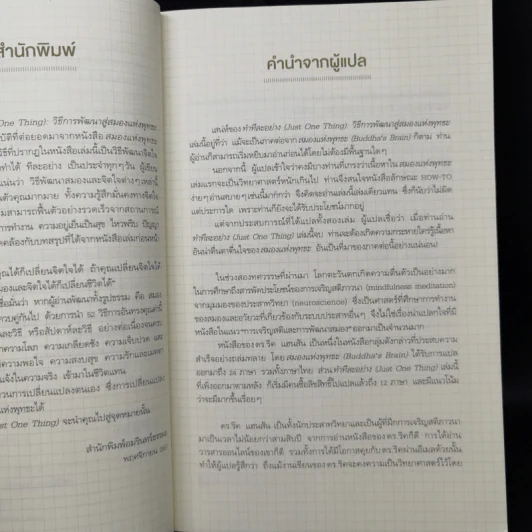 สำนักพิมพ์
One Thing): วิธีการพัฒนาสู่สมองแห่งพุทธะ
บัติที่ต่อยอดมาจากหนังสือ สมองแห่งพุทธะ
วิธีที่ปรากฏในหนังสือเล่มนี้เป็นวิธีพัฒนาจิตใจ
ทำได้ ทีละอย่าง เป็นประจำทุกๆ วัน ผู้เขียน
แน่นว่า วิธีพัฒนาสมองและจิตใจต่างๆ เหล่านี้
ตัวคุณมากมาย ทั้งความรู้สึกมั่นคงทางจิตใจ
มสามารถฟื้นตัวอย่างรวดเร็วจากสถานการณ์
การทำงาน ความอยู่เย็นเป็นสุข ไหวพริบ ปัญญา
คล้องกับบทสรุปที่ได้จากหนังสือเล่มก่อนหน้า
คุณได้ก็เปลี่ยนจิตใจได้ ถ้าคุณเปลี่ยนจิตใจได้
มองและจิตใจได้ก็เปลี่ยนชีวิตได้"
เชื่อมั่นว่า หากผู้อ่านพัฒนาทั้งรูปธรรม คือ สมอง
ควบคู่กันไป ด้วยการนำ 52 วิธีการอันทรงคุณค่านี้
ละวิธี หรือสัปดาห์ละวิธี อย่างต่อเนื่องจนครบ
ความโลภ ความเกลียดชัง ความเจ็บปวด และ
ความพอใจ ความสงบสุข ความรักและเมตตา
แจ้งในความจริง เข้ามาในชีวิตแทน
วนการเปลี่ยนแปลงตนเอง ซึ่งการเปลี่ยนแปลง
แห่งพุทธะได้
Just One Thing) จะนำคุณไปสู่จุดหมายนั้น
สำนักพิมพ์อมรินทร์ธรรมะ
พฤศจิกายน
คำนำจากผู้แปล
เสน่ห์ของ ทำทีละอย่าง (Just One Thing): วิธีการพัฒนาสู่สมองแห่งพุทธะ
เล่มนี้อยู่ที่ว่า แม้จะเป็นภาคต่อจาก สมองแห่งพุทธะ (Buddha's Brain) ก็ตาม ท่าน
ผู้อ่านก็สามารถเริ่มหยิบมาอ่านก่อนได้โดยไม่ต้องมีพื้นฐานใดๆ
นอกจากนี้ ผู้แปลเข้าใจว่าคงมีบางท่านที่เกรงว่าเนื้อหาใน สมองแห่งพุทธะ
เล่มแรกจะเป็นวิทยาศาสตร์หนักเกินไป ท่านจึงสนใจหนังสือลักษณะ HOW-TO
ง่ายๆ อ่านสบายๆ เช่นนี้มากกว่า จึงคิดจะอ่านเล่มนี้เล่มเดียวแทน ซึ่งก็นับว่าไม่ผิด
แต่ประการใด เพราะท่านก็ยังจะได้รับประโยชน์มากอยู่
แต่จากประสบการณ์ที่ได้แปลทั้งสองเล่ม ผู้แปลเชื่อว่า เมื่อท่านอ่าน
ทำทีละอย่าง (Just One Thing) เล่มนี้จบ ท่านจะต้องเกิดความกระหายใคร่รู้เนื้อหา
อันน่าตื่นตาตื่นใจของ สมองแห่งพุทธะ อันเป็นที่มาของภาคต่อนี้อย่างแน่นอน!
ในช่วงสองทศวรรษที่ผ่านมา โลกตะวันตกเกิดความตื่นตัวเป็นอย่างมาก
ในการศึกษาถึงสารพัดประโยชน์ของการเจริญสติภาวนา (mindfulness meditation)
จากมุมมองของประสาทวิทยา (neuroscience) ซึ่งเป็นศาสตร์ที่ศึกษาการทำงาน
ของสมองและอวัยวะที่เกี่ยวข้องกับระบบประสาทอื่นๆ จึงไม่ใช่เรื่องน่าแปลกใจที่มี
หนังสือในแนว "การเจริญสติและการพัฒนาสมอง" ออกมาเป็นจำนวนมาก
หนังสือของ ดร.ริค แฮนสัน เป็นหนึ่งในหนังสือกลุ่มดังกล่าวที่ประสบความ
สำเร็จอย่างถล่มทลาย โดย สมองแห่งพุทธะ (Buddha's Brain) ได้รับการแปล
ออกมาถึง 24 ภาษา รวมทั้งภาษาไทย ส่วน ทำทีละอย่าง (Just One Thing) เล่มนี้
ที่เพิ่งออกมาตามหลัง ก็เริ่มมีคนซื้อลิขสิทธิ์ไปแปลแล้วถึง 12 ภาษา และมีแนวโน้ม
ว่าจะมีมากขึ้นเรื่อยๆ
ดร.ริค แฮนสัน เป็นทั้งนักประสาทวิทยาและเป็นผู้ที่ฝึกการเจริญสติภาวนา
มาเป็นเวลาไม่น้อยกว่าสามสิบปี จากการอ่านหนังสือของ ดร.ริคก็ดี การได้อ่าน
วารสารออนไลน์ของเขาก็ดี รวมทั้งการได้มีโอกาสคุยกับ ดร.ริคผ่านอีเมลด้วยนั้น
ทำให้ผู้แปลรู้สึกว่า ถึงแม้งานเขียนของ ดร.ริคจะคงความเป็นวิทยาศาสตร์ไว้โดย